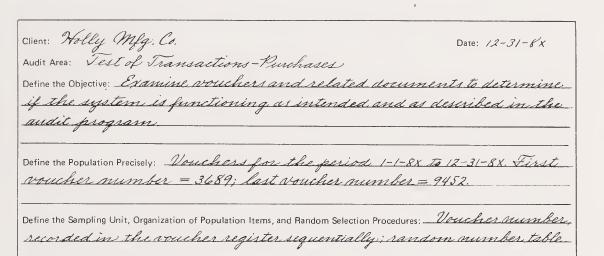 Client: Holly Mfg. Co. Date: 12-31-8X
Audit Area: Test of Transactions-Purchases
Define the Objective: Examine vouchers and related documents to determine
if the system is functioning as intended and as described in the
audit program.
Define the Population Precisely: Vouchers for the period 1-1-8X to 12-31-8X. First
voucher number = 3689; last voucher number = 9452.
Define the Sampling Unit, Organization of Population Items, and Random Selection Procedures: Voucher number,
recorded in the voucher register sequentially; random number table